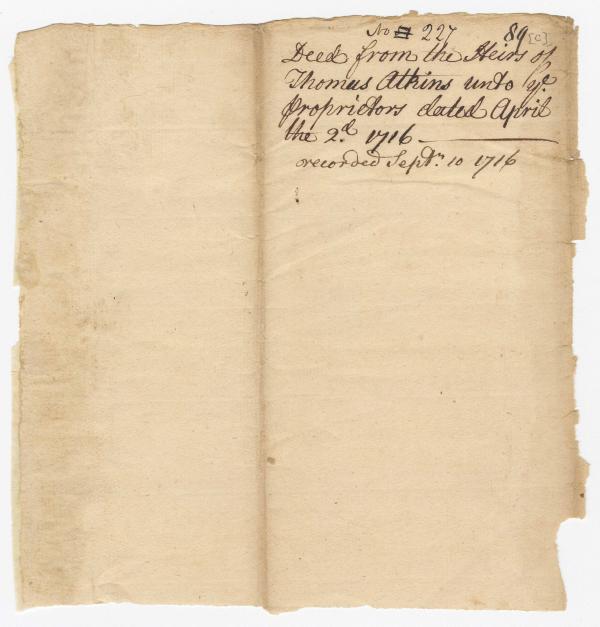 No 227 89 [c]
Deed from the Heirs of
Thomas Atkins unto ye
Proprietors dated April
the 2d 1716
recorded Septr 10 1716